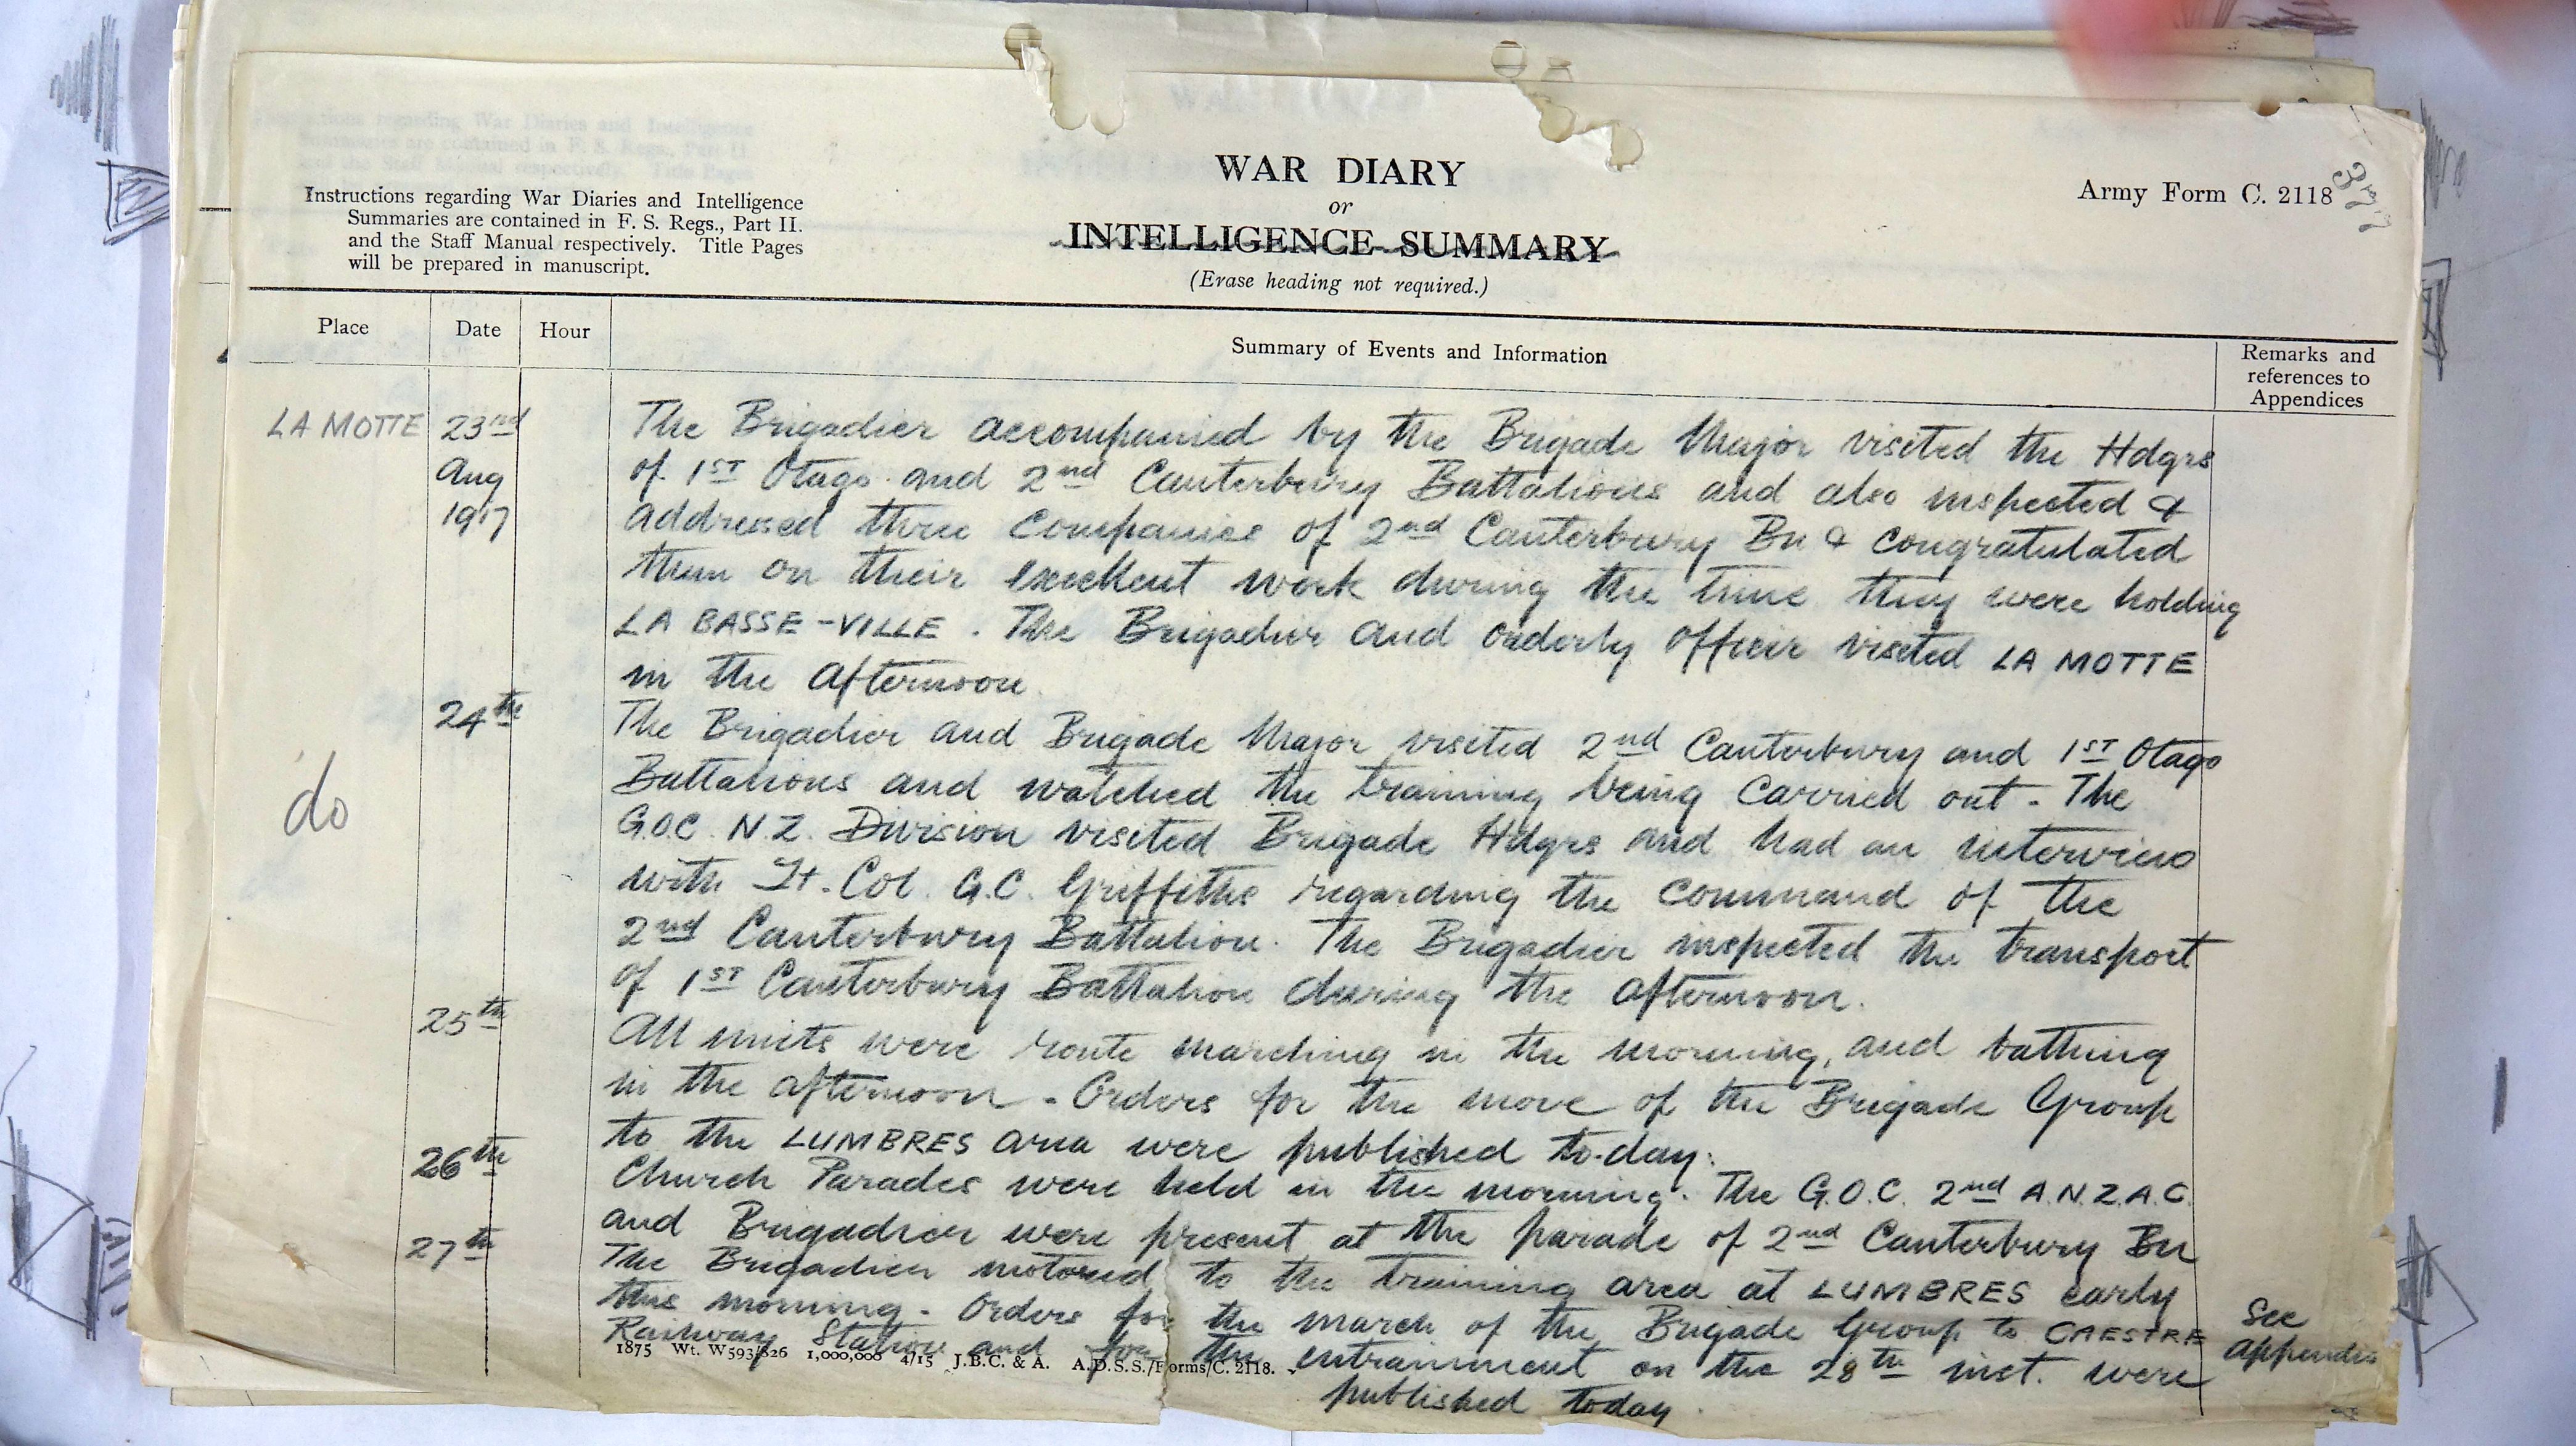 Instructions regarding War Diaries and Intelligence
Summaries are contained in F. S. Regs., Part II.
and the Staff Manual respectively. Title Pages
will be prepared in manuscript.
WAR DIARY
or
INTELLIGENCE SUMMARY
(Erase heading not required.)
Army Form C. 2118
Place Date Hour Summary of Events and Information Remarks and references to Appendices
LA MOTTE 23rd Aug 1917
The Brigadier accompanied by the Brigade Major visited the Hdqrs
of 1ST Otago and 2nd Canterbury Battalions and also inspected &
addressed three Companies of 2nd Canterbury Bn & congratulated
them on their excellent work during the time they were holding
LA BASSE-VILLE. The Brigadier and orderly officer visited LA MOTTE
in the afternoon
do 24th
The Brigadier and Brigade Major visited 2nd Canterbury and 1ST Otago
Battalions and watched the training being carried out. The
G.O.C. N.Z. Division visited Brigade Hdqrs and had an interview
with Lt. Col. G.C. Griffiths regarding the command of the
2nd Canterbury Battalion. The Brigadier inspected the transport
of 1ST Canterbury Battalion during the afternoon.
25th
All units were route marching in the morning, and bathing
in the afternoon. Orders for the move of the Brigade Group
to the LUMBRES area were published to-day.
26th
Church Parades were held in the morning. The G.O.C. 2nd A.N.Z.A.C.
and Brigadier were present at the parade of 2nd Canterbury Bn
27th
The Brigadier motored to the training area at LUMBRES early
this morning. Orders for the march of the Brigade Group to CAESTRE
Railway Station and for the entrainment on the 28th inst. were
published today.
See
appendix
1875 Wt. W593/826 1,000,000 4/15 J.B.C. & A. A.D.S.S./Forms/C. 2118.